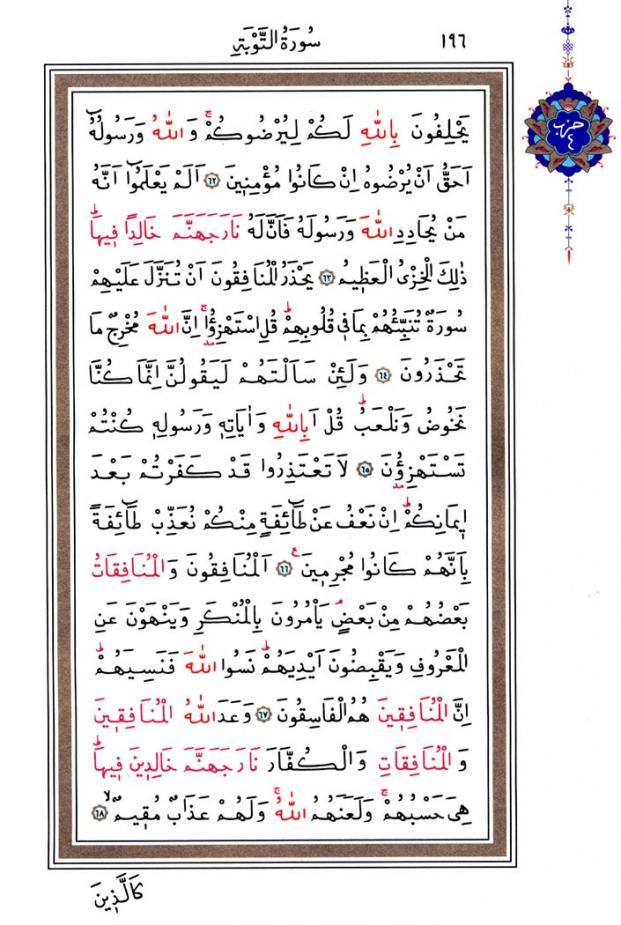 ١٩٦ سُورَةُ التَّوْبَةِ
حزب ٤
يَحْلِفُونَ بِاللّٰهِ لَكُمْ لِيُرْضُوكُمْۚ وَاللّٰهُ وَرَسُولُهُٓ
اَحَقُّ اَنْ يُرْضُوهُ اِنْ كَانُوا مُؤْمِنٖينَ ﴿٦٢﴾ اَلَمْ يَعْلَمُٓوا اَنَّهُ
مَنْ يُحَادِدِ اللّٰهَ وَرَسُولَهُ فَاَنَّ لَهُ نَارَ جَهَنَّمَ خَالِدًا فٖيهَاۜ
ذٰلِكَ الْخِزْىُ الْعَظٖيمُ ﴿٦٣﴾ يَحْذَرُ الْمُنَافِقُونَ اَنْ تُنَزَّلَ عَلَيْهِمْ
سُورَةٌ تُنَبِّئُهُمْ بِمَا فٖى قُلُوبِهِمْۜ قُلِ اسْتَهْزِؤُ۫اۚ اِنَّ اللّٰهَ مُخْرِجٌ مَا
تَحْذَرُونَ ﴿٦٤﴾ وَلَئِنْ سَاَلْتَهُمْ لَيَقُولُنَّ اِنَّمَا كُنَّا
نَخُوضُ وَنَلْعَبُۜ قُلْ اَبِاللّٰهِ وَاٰيَاتِهٖ وَرَسُولِهٖ كُنْتُمْ
تَسْتَهْزِؤُ۫نَ ﴿٦٥﴾ لَا تَعْتَذِرُوا قَدْ كَفَرْتُمْ بَعْدَ
اٖيمَانِكُمْۜ اِنْ نَعْفُ عَنْ طَٓائِفَةٍ مِنْكُمْ نُعَذِّبْ طَٓائِفَةً
بِاَنَّهُمْ كَانُوا مُجْرِمٖينَࣖ ﴿٦٦﴾ اَلْمُنَافِقُونَ وَالْمُنَافِقَاتُ
بَعْضُهُمْ مِنْ بَعْضٍۢ يَأْمُرُونَ بِالْمُنْكَرِ وَيَنْهَوْنَ عَنِ
الْمَعْرُوفِ وَيَقْبِضُونَ اَيْدِيَهُمْۜ نَسُوا اللّٰهَ فَنَسِيَهُمْۜ
اِنَّ الْمُنَافِقٖينَ هُمُ الْفَاسِقُونَ ﴿٦٧﴾ وَعَدَ اللّٰهُ الْمُنَافِقٖينَ
وَالْمُنَافِقَاتِ وَالْكُفَّارَ نَارَ جَهَنَّمَ خَالِدٖينَ فٖيهَاۜ
هِىَ حَسْبُهُمْۚ وَلَعَنَهُمُ اللّٰهُۚ وَلَهُمْ عَذَابٌ مُقٖيمٌۙ ﴿٦٨﴾
كَالَّذٖينَ